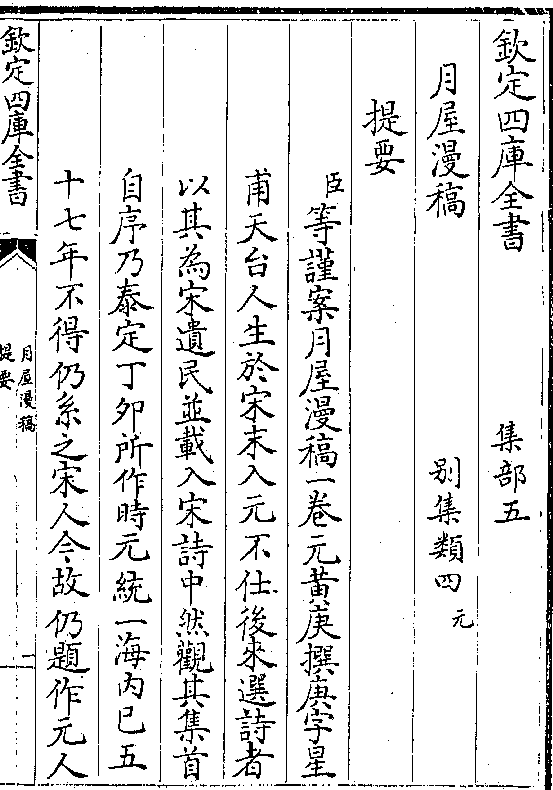 欽定四庫全書
集部五
月屋漫稿
别集類四元
提要
臣等謹案月屋漫稿一卷元黄庚撰庚字星
甫天台人生於宋末入元不仕後來選詩者
以其為宋遺民並載入宋詩中然觀其集首
自序乃泰定丁夘所作時元統一海内已五
十七年不得仍系之宋人今故仍題作元人
欽定四庫全書
月屋漫稿
提要
一